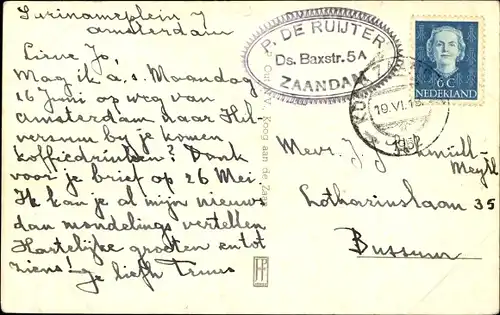 Surinameplein 7
Amsterdam
Lieve Jo,
Mag ik a,s, Maandag
16 Juni op weg van
Amsterdam naar Hil-
versum bij je komen
koffiedrinken? Dank
voor je brief op 26 Mei
Ik kan je al mijn nieuws
dan mondelings vertellen
Hartelijke groeten en tot
ziens! Je liefh Truus
P. DE RUIJTER
Ds. Baxstr. 5A
ZAANDAM
Koog aan de Zaan
6 C
NEDERLAND
Mevr. J. J. Schmüll-
Meyll
Lothariuslaan 35
Bussum